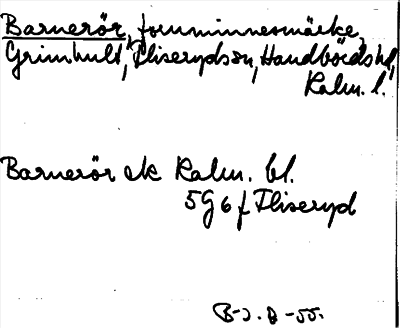 Barnerör, fornminnesmärke,
Grimhult, Fliseryds sn, Handbörds hd,
Kalm. l.
Barnerör ek Kalm. bl.
5G 6 f Fliseryd
B-J. B -55.